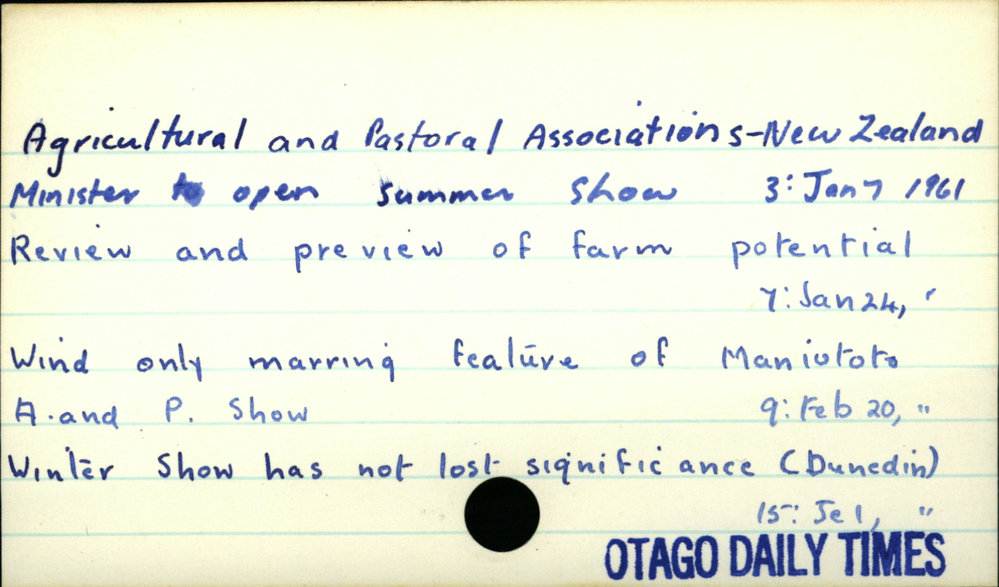 Agricultural and Pastoral Associations-New Zealand
Minister to open Summer Show 3: Jan 7 1961
Review and preview of farm potential
7: Jan 24, "
Wind only marring feature of Maniototo
A. and P. Show 9: Feb 20, "
Winter Show has not lost significance (Dunedin)
15: Je 1, "
OTAGO DAILY TIMES